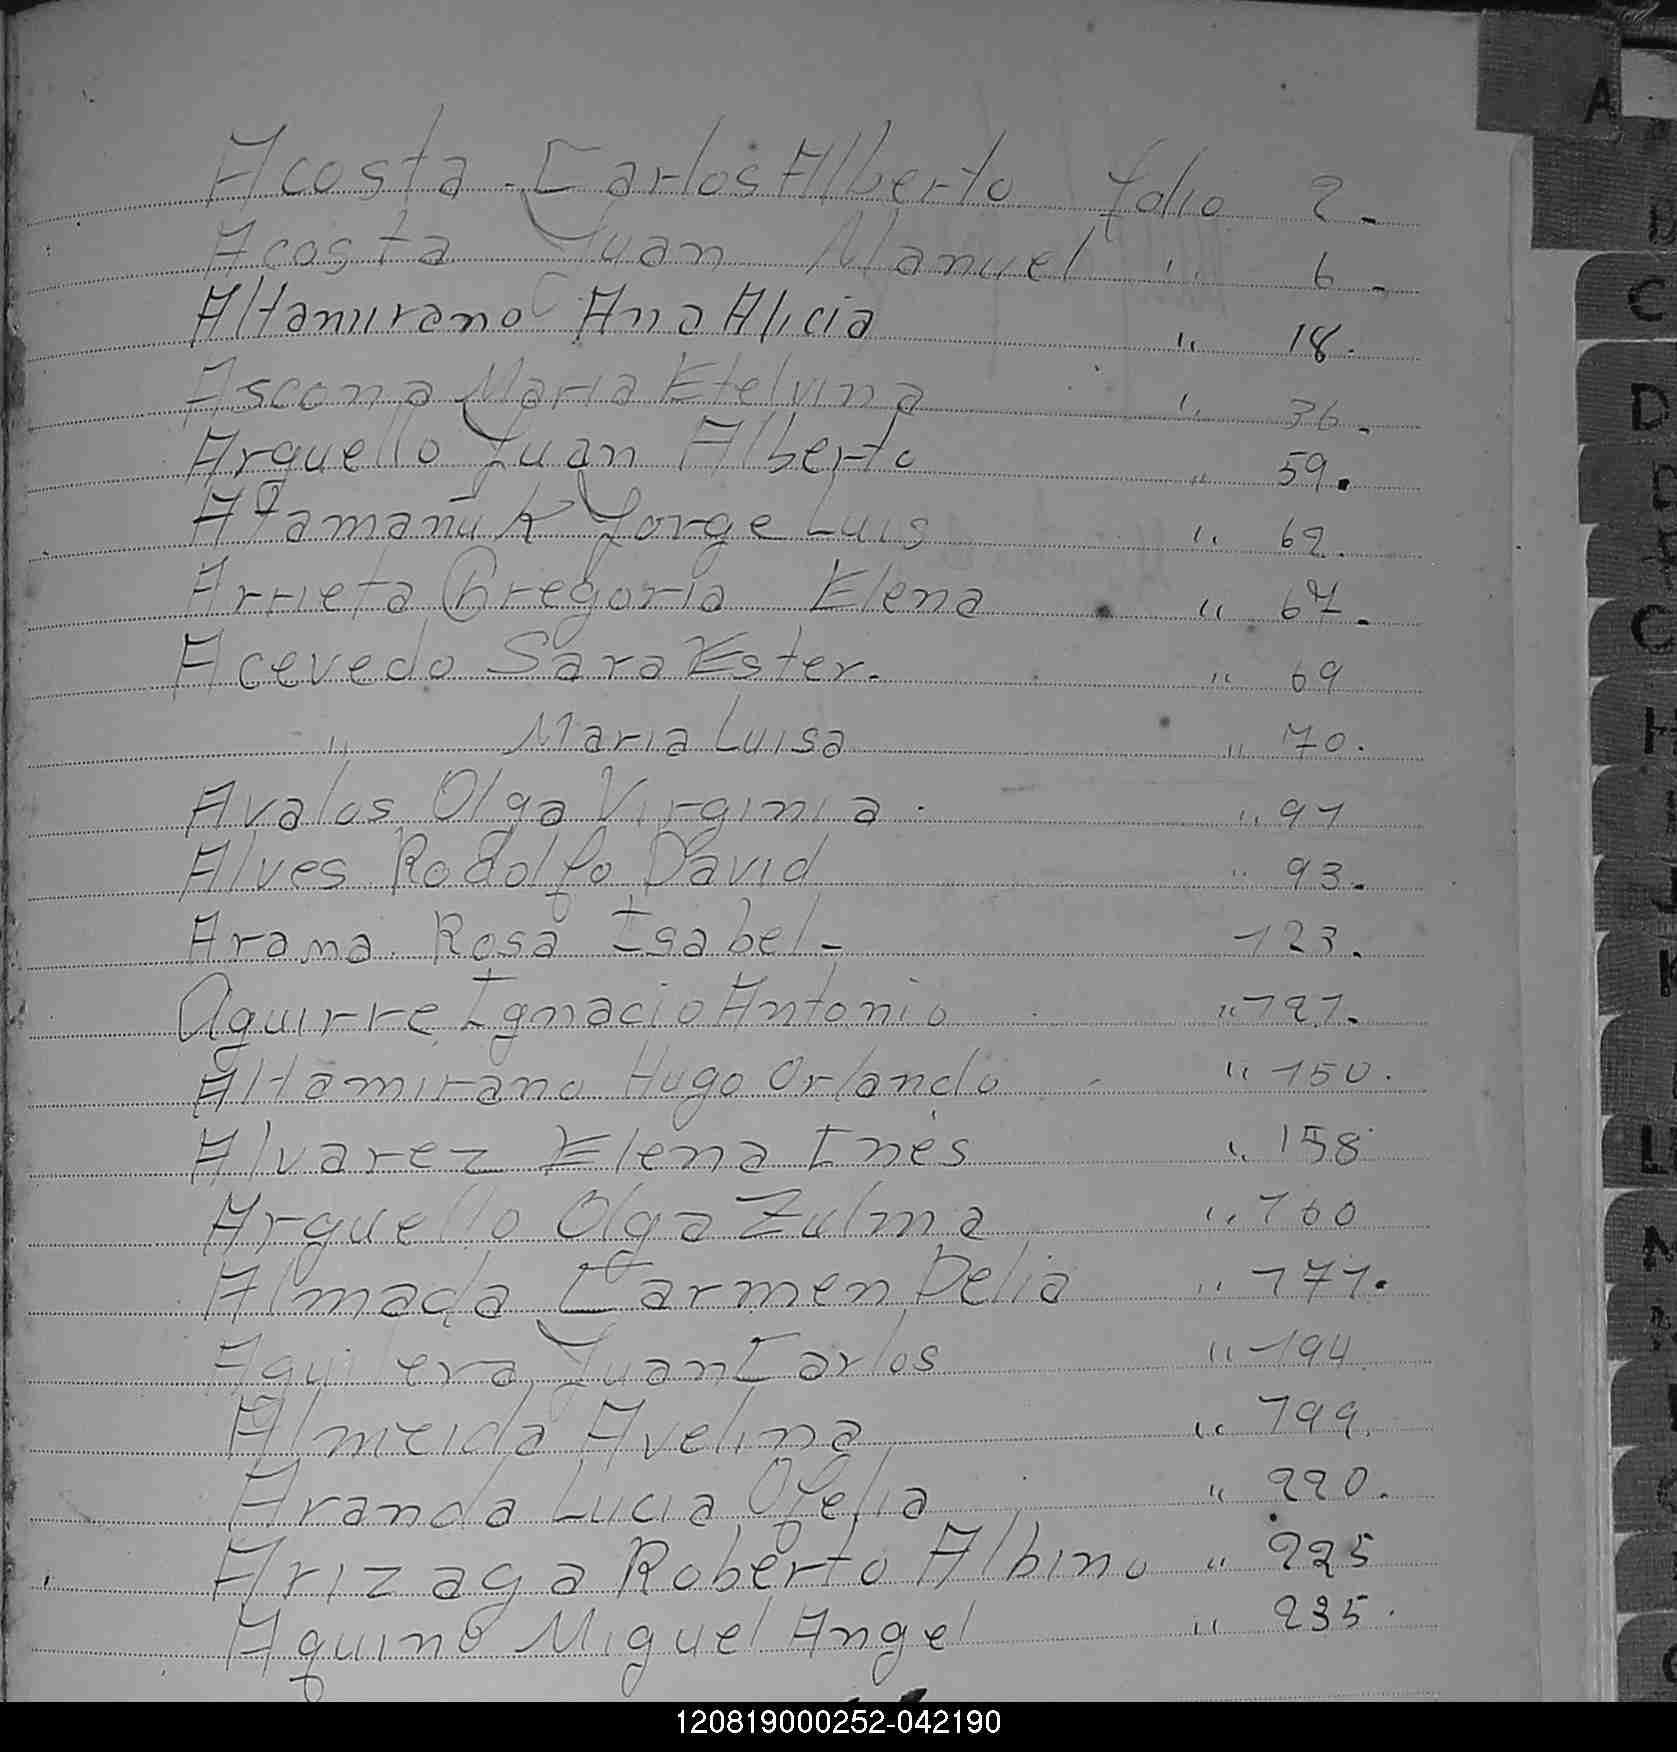 A
Acosta Carlos Alberto folio 2.
Acosta Juan Manuel " 6.
Altamirano Ana Alicia " 18.
Ascona Maria Etelvina " 36.
Arguello Juan Alberto " 59.
Atamañuk Jorge Luis " 62.
Arrieta Gregoria Elena " 67.
Acevedo Sara Ester. " 69
" Maria Luisa " 70.
Avalos Olga Virginia. " 91
Alves Rodolfo David " 93.
Arama Rosa Isabel - 123.
Aguirre Ignacio Antonio " 127.
Altamirano Hugo Orlando " 150.
Alvarez Elena Inés " 158
Arguello Olga Zulma " 160
Almada Carmen Delia " 171.
Aguilera Juan Carlos " 194
Almeida Avelina " 199.
Aranda Lucia Ofelia " 220.
Arizaga Roberto Albino " 225
Aquino Miguel Angel " 235.
C
D
H
K
120819000252-042190